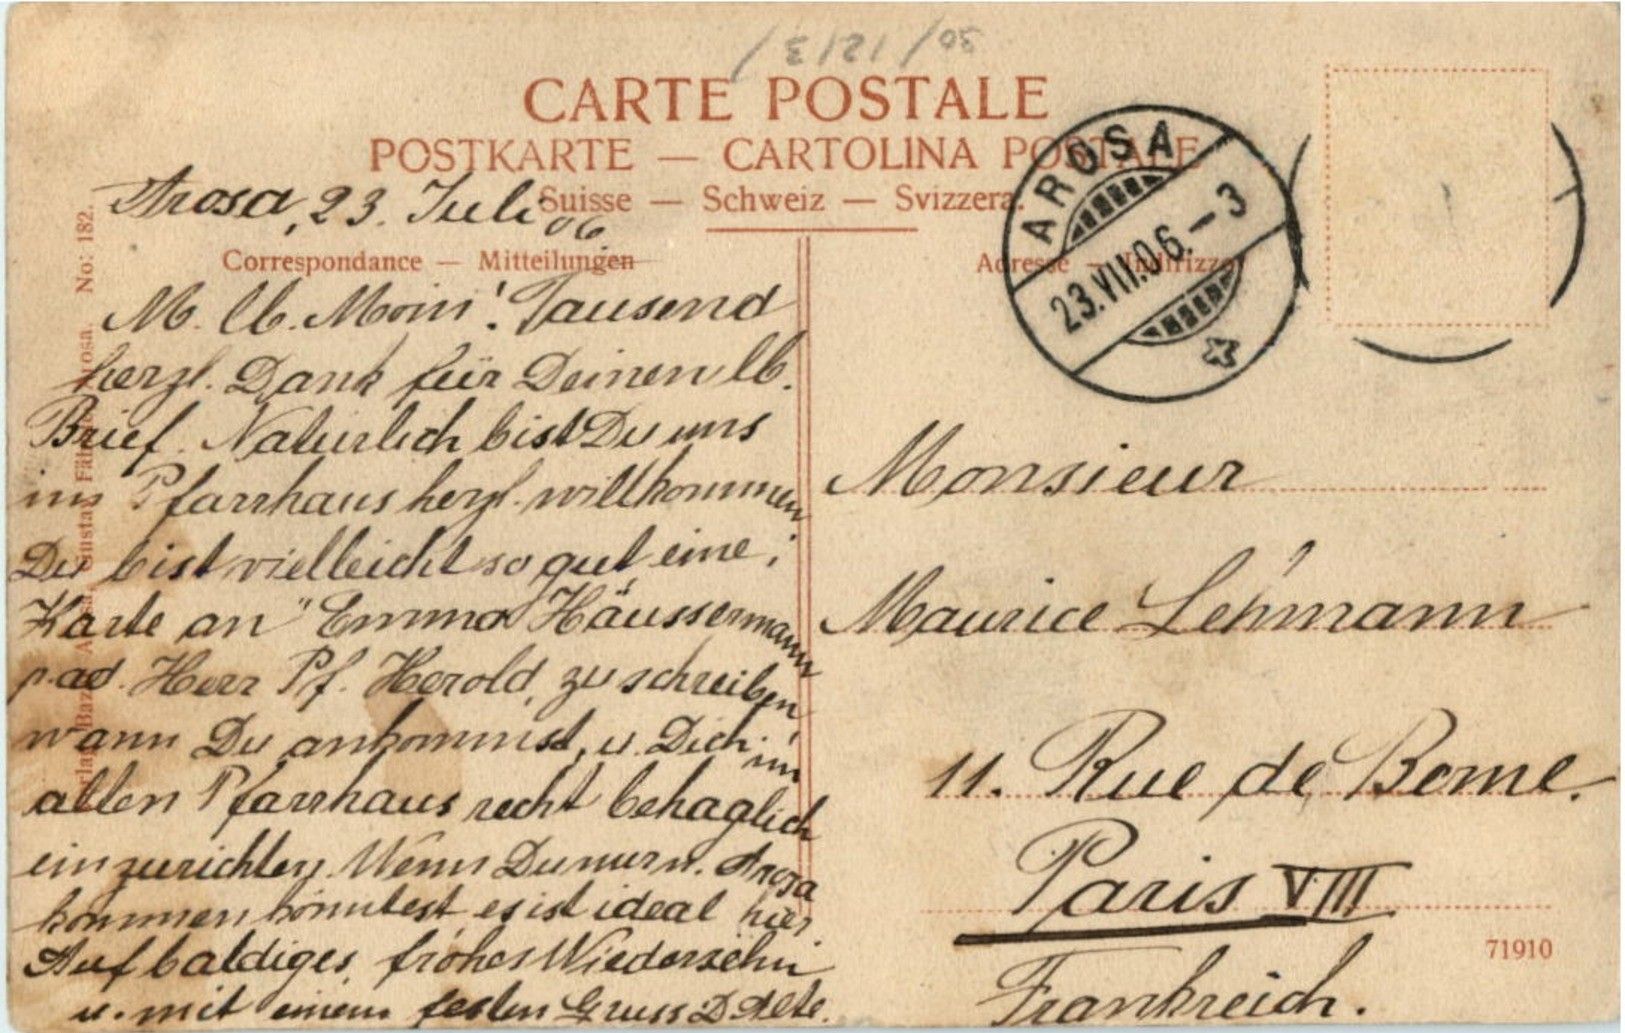 30/1213/
CARTE POSTALE
POSTKARTE — CARTOLINA POSTALE
Suisse — Schweiz — Svizzera.
Correspondance — Mitteilungen
Adresse — Indirizzo
AROSA
23.VII.06.–3
Arosa, 23. Juli 06
M. lb. Moni! Tausend
herzl. Dank für Deinen lb.
Brief. Natürlich bist Du uns
im Pfarrhaus herzl. willkommen
Du bist vielleicht so gut eine
Karte an "Emma Häussermann
p. ad. Herr Pf. Herold, zu schreiben
wann Du ankommst, u. Dich im
alten Pfarrhaus recht behaglich
einzurichten. Wenn Du nur n. Arosa
kommen könntest, es ist ideal hier
Auf baldiges, frohes Wiedersehn
u. mit einem festen Gruss D. Alte.
Monsieur
Maurice Lehmann
11. Rue de Berne.
Paris VIII
Frankreich.
71910
Verlag Bazar Gustav Arosa. No: 182.